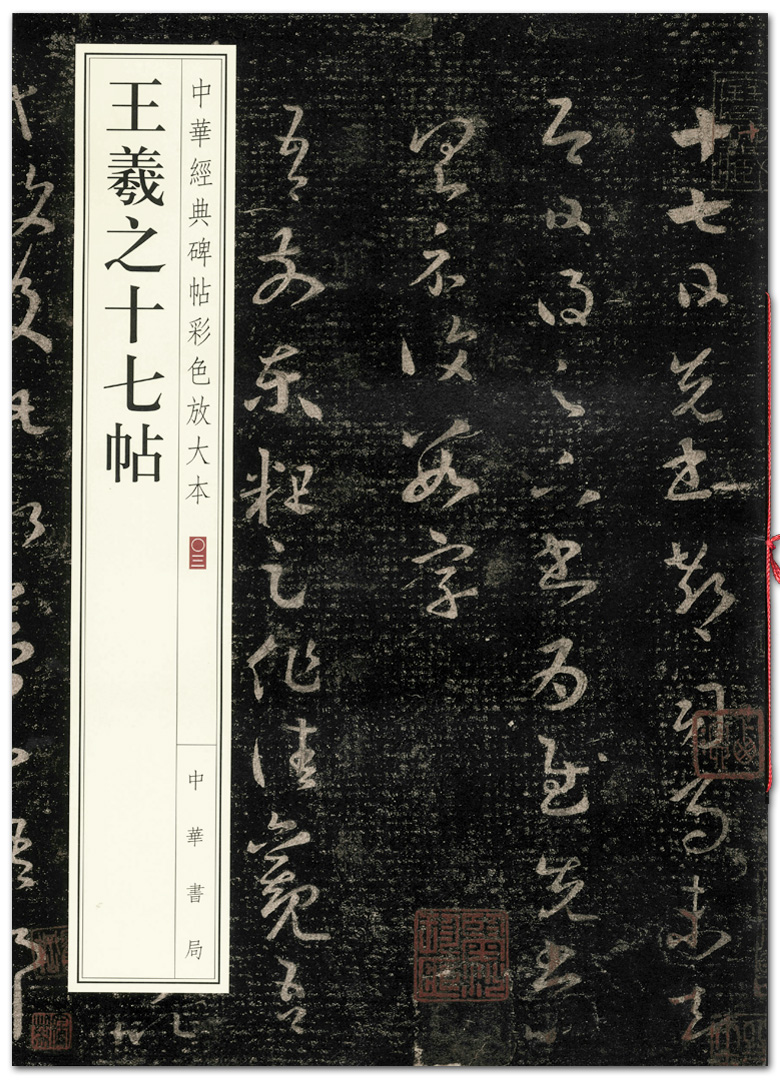 十七日先書郗司馬未去
即日得足下書為慰先書以
具示復數字
吾前東粗足作佳觀吾
中華經典碑帖彩色放大本
〇三
中華書局
王羲之十七帖